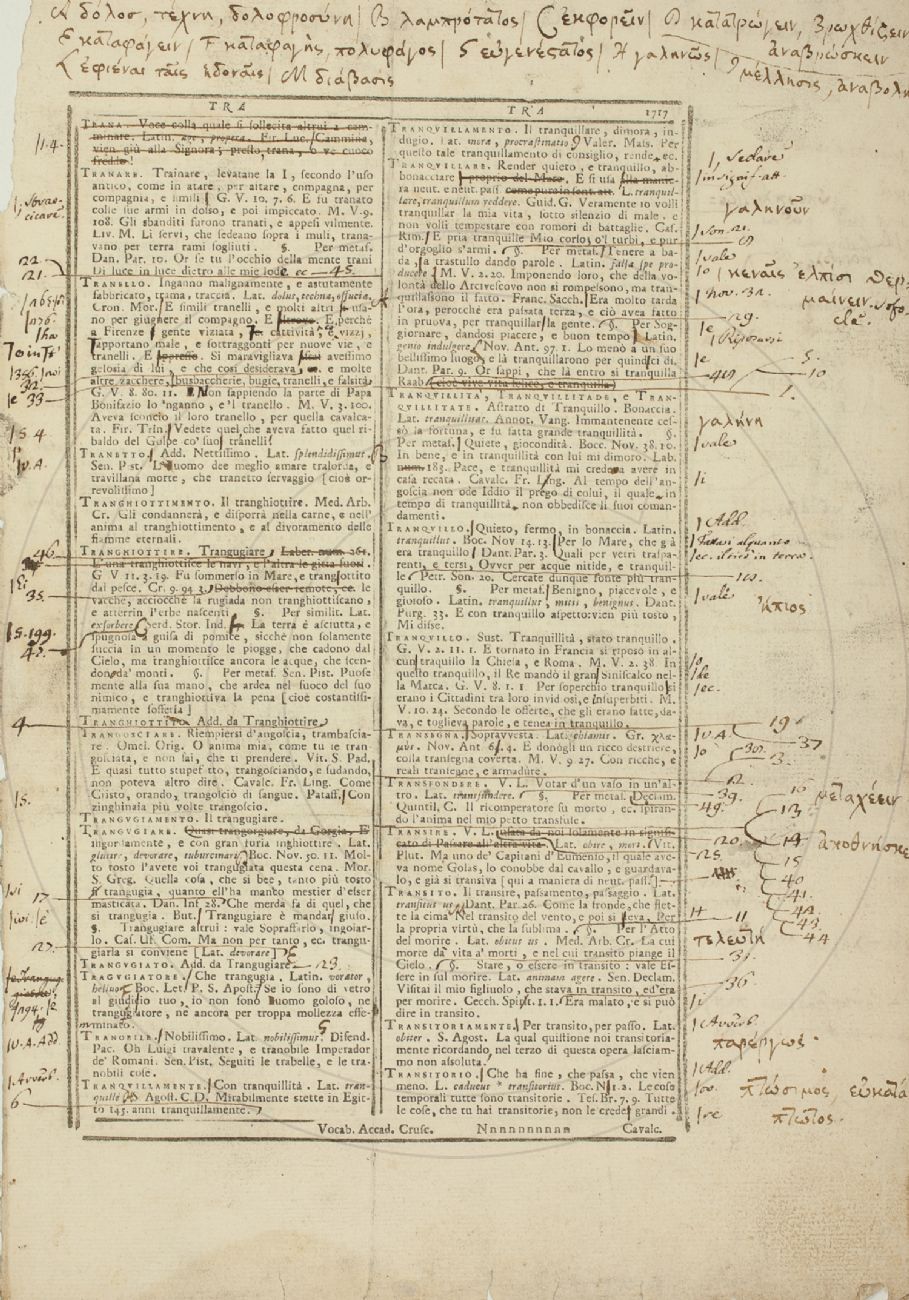 A δόλος, τέχνη, δολοφροσύνη | B λαμπρότατος | C ἐκφορεῖν | D κατατρώγειν, βρωχθίζειν
E καταφάγειν | F καταφαγὴς, πολυφάγος | G εὐγενέστατος | H γαληνῶς | ἀναβρώσκειν
L ἐφιέναι ταῖς ἡδοναῖς | M διάβασις
μέλλησις, ἀναβολὴ
TRA
TRA 1717
TRANA. Voce colla quale si sollecita altrui a cam-
minare. Latin. age, propera. Fir. Luc. Cammina,
vien giù alla Signora; presto, trana, o ve cuoco
freddo!
TRANARE. Trainare, levatane la I, secondo l'uso
antico, come in atare, per aitare, compagna, per
compagnia, e simili G. V. 10. 7. 6. E fu tranato
colle sue armi in dosso, e poi impiccato. M. V. 9.
108. Gli sbanditi furono tranati, e appesi vilmente.
Liv. M. Li servi, che sedeano sopra i muli, trana-
vano per terra rami fogliuti. §. Per metaf.
Dan. Par. 10. Or se tu l'occhio della mente trani
Di luce in luce dietro alle mie lode ec 45.
TRANELLO. Inganno malignamente, e astutamente
fabbricato, trama, traccia. Lat. dolus, techna, offucia.
Cron. Mor. E simile tranelli, e molti altri usa-
no per giugnere il compagno. E perchè
a Firenze gente viziata, cattività, e vizzj,
rapportano male, e sottraggonti per nuove vie, e
tranelli. E Si maravigliava avessimo
gelosia di lui, e che così desiderava, e molte
altre zacchere, busbaccherie, bugie, tranelli, e falsità
G. V. 8. 80. 11. Non sappiendo la parte di Papa
Bonifazio lo 'nganno, e 'l tranello. M. V. 3. 100.
Aveva sconcio il loro tranello, per quella cavalca-
ta. Fir. Trin. Vedete quel che aveva fatto quel ri-
baldo del Golpe co' suoi tranelli!
TRANETTO. Add. Nettissimo. Lat. splendidissimus.
Sen. Pist. L'uomo dee meglio amare tralorda, e
travillana morte, che tranetto servaggio [cioè or-
revolissimo]
TRANGHIOTTIMENTO. Il tranghiottire. Med. Arb.
Cr. Gli condannerà, e disporrà nella carne, e nell'
anima al tranghiottimento, e al divoramento delle
fiamme eternali.
TRANGHIOTTIRE. Trangugiare, Laber. num. 261.
E una tranghiottisce le navi, e l'altra le gitta fuori.
G. V 11. 3. 19. Fu sommerso in Mare, e tranghiottito
dal pesce. Cr. 9. 94. 3. Debbono esser remote, ec. le
vacche, acciocchè la rugiada non tranghiottiscano,
e atterrin l'erbe nascenti. §. Per similit. Lat.
exsorbere Serd. Stor. Ind. La terra è asciutta, e
spugnosa a guisa di pomice, sicchè non solamente
succia in un momento le piogge, che cadono dal
Cielo, ma tranghiottisce ancora le acque, che scen-
don da' monti. §. Per metaf. Sen. Pist. Puose
mente alla sua mano, che ardea nel fuoco del suo
nimico, e tranghiottiva la pena [cioè costantissi-
mamente sofferia]
TRANGHIOTTITO. Add. da Tranghiottire
TRANGOSCIARE. Riempiersi d'angoscia, trambascia-
re. Omel. Orig. O anima mia, come tu se tran-
gosciata, e non sai, che ti prendere. Vit. S. Pad.
E quasi tutto stupefatto, trangosciando, e sudando,
non poteva altro dire. Cavalc. Fr. Ling. Come
Cristo, orando, trangosciò di sangue. Pataff. Con
zinghinaja più volte trangoscio.
TRANGUGIAMENTO. Il trangugiare.
TRANGUGIARE. Quasi trangorgiare, da Gorgia, E
ingordamente, e con gran furia inghiottire. Lat.
glutire, devorare, tuburcinari Boc. Nov. 50. 11. Mol-
to tosto l'avete voi trangugiata questa cena. Mor.
S. Greg. Quella cosa, che si bee, tanto più tosto
si trangugia, quanto ell'ha manco mestier d'esser
masticata. Dan. Inf 28. Che merda fa di quel, che
si trangugia. But. Trangugiare è mandar giuso.
§. Trangugiare altrui: vale Sopraffarlo, ingojar-
lo. Cas. Uf. Com. Ma non per tanto, ec. trangu-
giarla si conviene [Lat. devorare]
TRANGUGIATO. Add. da Trangugiare 23.
TRAGUGIATORE. Che trangugia. Latin. vorator,
heluo. Boc. Let. P. S. Apost. Se io sono di vetro
al giudicio tuo, io non sono uomo goloso, ne
trangugiatore, ne ancora per troppa mollezza effe-
minato.
TRANOBILE. Nobilissimo. Lat. nobilissimus. Difend.
Pac. Oh Luigi travalente, e tranobile Imperador
de' Romani. Sen. Pist. Seguiti le trabelle, e le tra-
nobili cose.
TRANQUILLAMENTE. Con tranquillità. Lat. tran-
quille Agost. C. D. Mirabilmente stette in Egit-
to 145. anni tranquillamente.
TRANQUILLAMENTO. Il tranquillare, dimora, in-
dugio. Lat. mora, procrastinatio Valer. Mass. Per
questo tale tranquillamento di consiglio, rende, ec.
TRANQUILLARE. Render quieto, e tranquillo, ab-
bonacciare proprio del Mare. E si usa
ra neut. e neut. pass. come pure in sent. att. L. tranquil-
lare, tranquillum reddere. Guid. G. Veramente io volli
tranquillar la mia vita, sotto silenzio di male, e
non volli tempestare con romori di battaglie. Cas.
Rim. E pria tranquille Mio corso, o'l turbi, e pur
d'orgoglio s'armi. §. Per metaf. Tenere a ba-
da, a trastullo dando parole. Latin. falsa spe pro-
ducere M. V. 2. 20. Imponendo loro, che della vo-
lontà dello Arcivescovo non si rompessono, ma tran-
quillassono il fatto. Franc. Sacch. Era molto tarda
l'ora, perocchè era passata terza, e ciò avea fatto
in pruova, per tranquillar la gente. §. Per Sog-
giornare, dandosi piacere, e buon tempo Latin.
genio indulgere Nov. Ant. 97. 1. Lo menò a un suo
bellissimo luogo, e là tranquillarono per quindici dì.
Dant. Par. 9. Or sappi, che là entro si tranquilla
Raab (cioè vive vita felice, e tranquilla)
TRANQUILLITÀ, TRANQUILLITADE, e TRAN-
QUILLITATE. Astratto di Tranquillo. Bonaccia.
Lat. tranquillitas. Annot. Vang. Immantenente ces-
sò la fortuna, e fu fatta grande tranquillità. §.
Per metaf. Quiete, giocondità. Bocc. Nov. 38. 10.
In bene, e in tranquillità con lui mi dimoro. Lab.
num. 183. Pace, e tranquillità mi credeva avere in
casa recata. Cavalc. Fr. Ling. Al tempo dell'an-
goscia non ode Iddio il prego di colui, il quale in
tempo di tranquillità, non obbedisce li suoi coman-
damenti.
TRANQUILLO. Quieto, fermo, in bonaccia. Latin.
tranquillus. Boc. Nov 14. 13. Per lo Mare, che già
era tranquillo Dant. Par. 3. Quali per vetri traspa-
renti, e tersi, Ovver per acque nitide, e tranquil-
le Petr. Son. 20. Cercate dunque fonte più tran-
quillo. §. Per metaf. Benigno, piacevole, e
giojoso. Latin. tranquillus, mitis, benignus. Dant.
Purg. 33. E con tranquillo aspetto: vien più tosto,
Mi disse.
TRANQUILLO. Sust. Tranquillità, stato tranquillo.
G. V. 2. 11. 1. E tornato in Francia si riposò in al-
cun traquillo la Chiesa, e Roma. M. V. 2. 38. In
questo tranquillo, il Re mandò il gran Siniscalco nel-
la Marca. G. V. 8. 1. 1 Per soperchio tranquillo si
erano i Cittadini tra loro invidiosi, e insuperbiti. M.
V. 10. 24. Secondo le offerte, che gli erano fatte, da-
va, e toglieva parole, e tenea in tranquillo.
TRANSEGNA. Sopravvesta. Lat. chlamus. Gr. χλα-
μύς. Nov. Ant 6. 4. E donògli un ricco destriere,
colla transegna coverta. M. V. 9 27. Con ricche, e
reali transegne, e armadure.
TRANSFONDERE. V. L. Votar d'un vaso in un'al-
tro. Lat. transfundere. §. Per metaf. Declam.
Quintil. C. Il ricomperatore fu morto, ec. spiran-
do l'anima nel mio petto transfuse.
TRANSIRE. V. L. usata da noi solamente in signifi-
cato di Passare all'altra vita. Lat. obire, mori. Vit.
Plut. Ma uno de' Capitani d'Eumenio, il quale ave-
va nome Golas, lo conobbe dal cavallo, e guardava-
lo, e già si transiva [qui a maniera di neut. pass.]
TRANSITO. Il transire, passamento, passaggio. Lat.
transitus us Dant. Par 26. Come la fronde, che flet-
te la cima Nel transito del vento, e poi si leva, Per
la propria virtù, che la sublima. §. Per l'Atto
del morire. Lat. obitus us. Med. Arb. Cr. La cui
morte dà vita a' morti, e nel cui transito piange il
Cielo. §. Stare, o essere in transito: vale Es-
sere in sul morire. Lat. animam agere. Sen. Declam.
Visitai il mio figliuolo, che stava in transito, ed era
per morire. Cecch. Spirit. 1. 1. Era malato, e si può
dire in transito.
TRANSITORIAMENTE. Per transito, per passo. Lat.
obiter. S. Agost. La qual quistione noi transitoria-
mente ricordando, nel terzo di questa opera lasciam-
mo non assoluta.
TRANSITORIO. Che ha fine, che passa, che vien
meno. L. caducus * transitorius. Boc. N. 1. 2. Le cose
temporali tutte sono transitorie. Tes. Br. 7. 9. Tutte
le cose, che tu hai transitorie, non le crede grandi.
Vocab. Accad. Crusc. Nnnnnnnnnn Cavalc.
22.
21.
32.
33
46
35.
4
17
27.
6
1, Sedare
γαληνοῦν
1 vale
κεναῖς ἐλπίσι θερ-
μαίνειν. Sofo-
cle.
γαλήνη
1 vale
1 Add.
1 vale
ἤπιος
μεταχέειν
ἀποθνήσκειν
τελευτή
1 Avverb.
παρέργως.
1 Add.
πτώσιμος, εὐκατά
πτωτος.